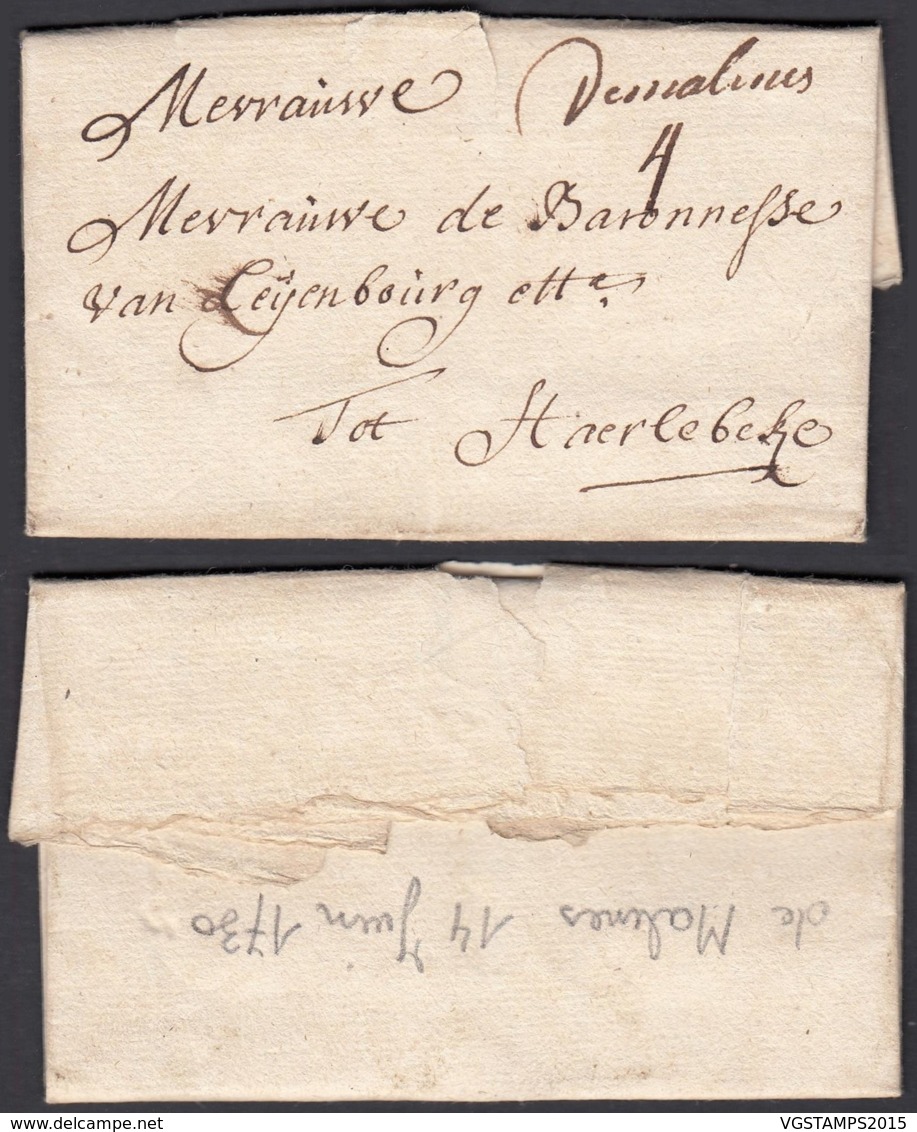 Mevrauwe Demalines
4
Mevrauwe de Baronnesse
van Leyenbourg etta
Tot Haerlebeke
de Malines 14 Juin 1730
VGSTAMPS2015